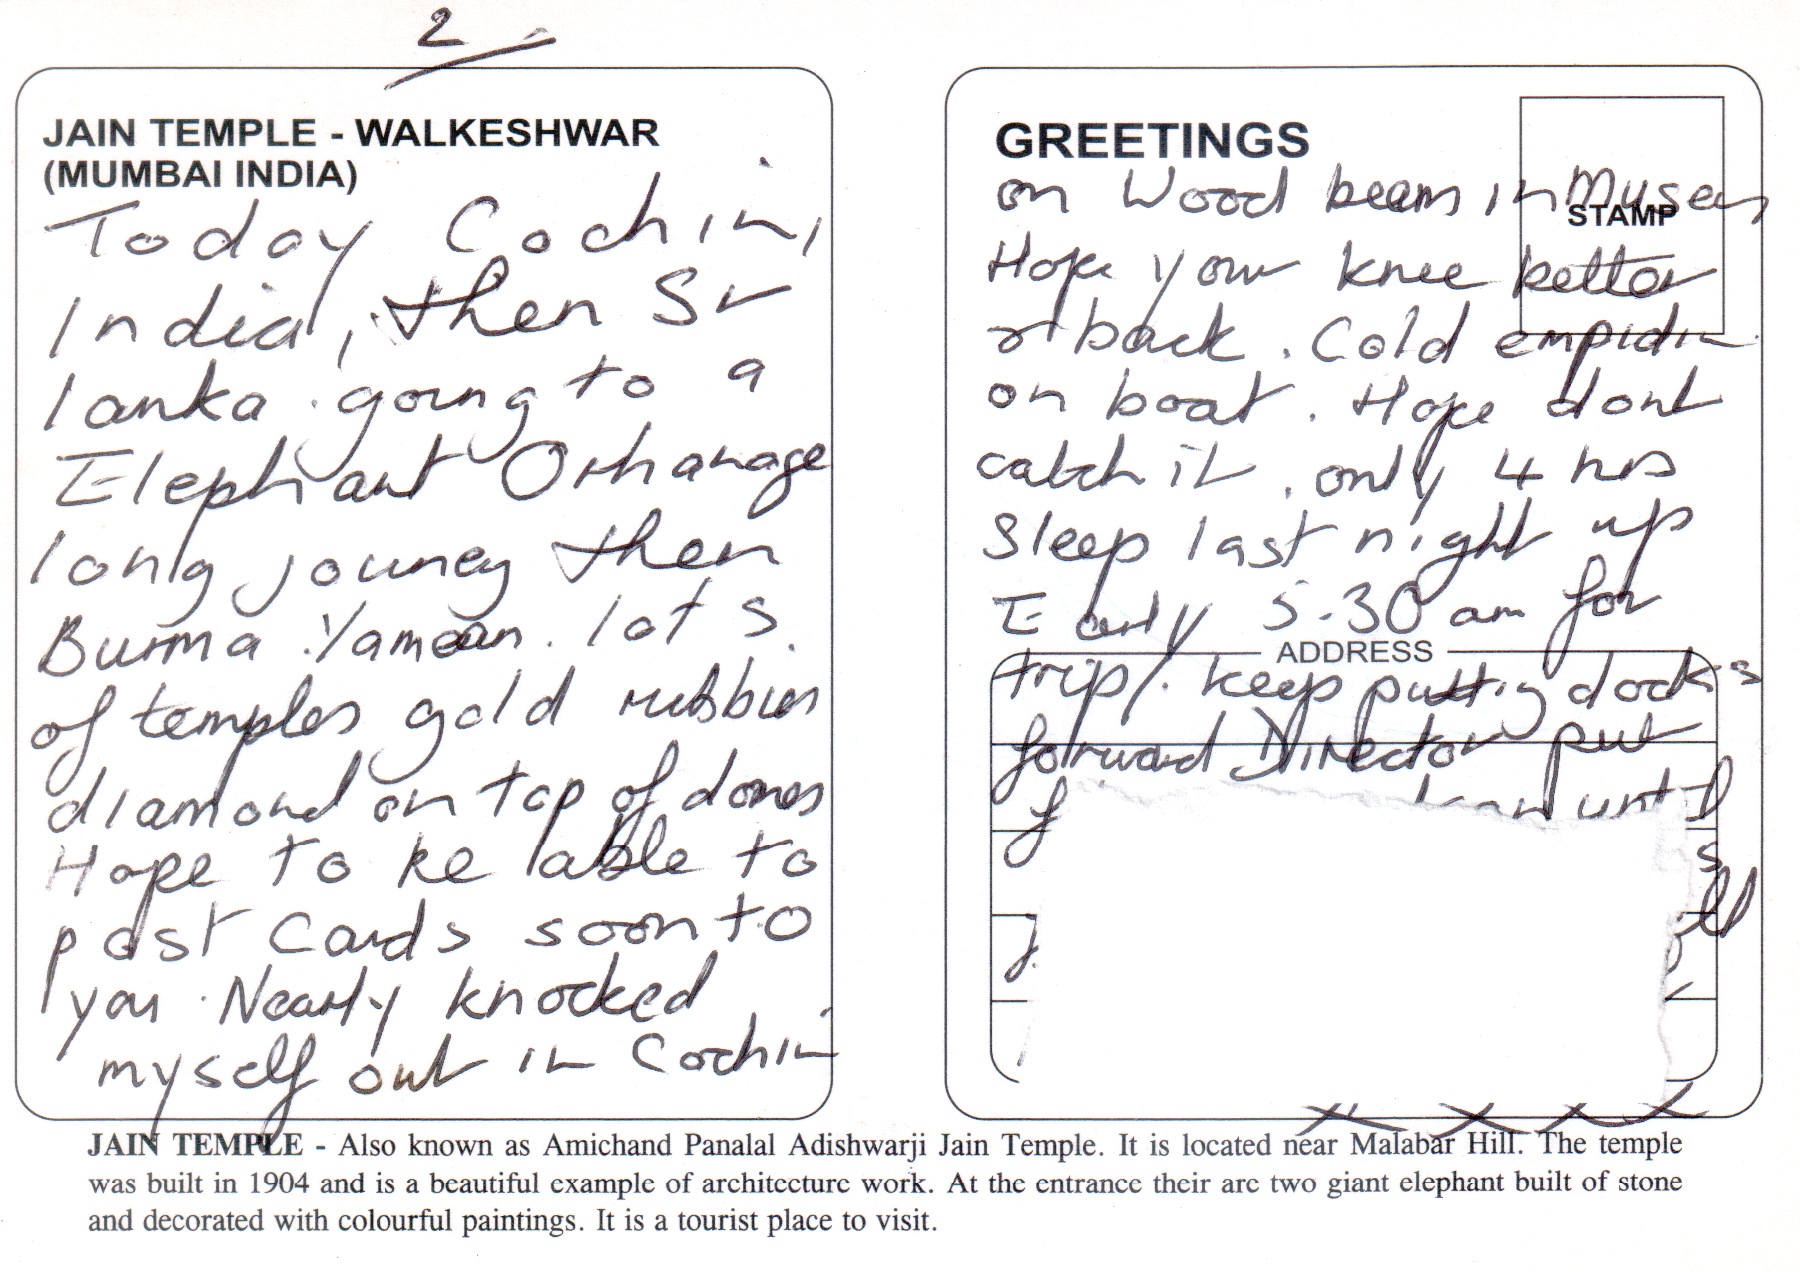 2
JAIN TEMPLE - WALKESHWAR
(MUMBAI INDIA)
Today Cochin,
India, then Sr
lanka. going to a
Elephant Orhanage
long jouney then
Burma. Yamean. lot s.
of temples gold rubbies
diamond on top of domes
Hope to be able to
post Cards soon to
you. Nearly knocked
myself out in Cochin
GREETINGS
STAMP
on Wood beam in Museum
Hope your knee better
or back. Cold empidin
on boat. Hope dont
catch it. only 4 hrs
Sleep last night up
Early 5-30 am for
ADDRESS
trip. keep putting clocks
forward Director put
until
x x x x
JAIN TEMPLE - Also known as Amichand Panalal Adishwarji Jain Temple. It is located near Malabar Hill. The temple
was built in 1904 and is a beautiful example of architecture work. At the entrance their are two giant elephant built of stone
and decorated with colourful paintings. It is a tourist place to visit.